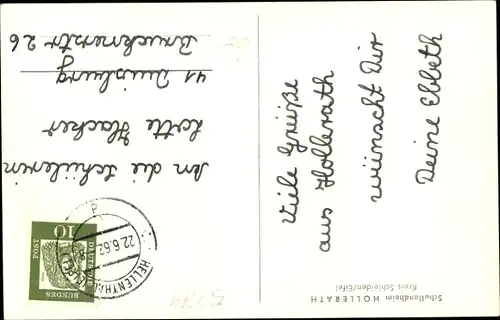 Viele Grüße
aus Hollerath
wünscht Dir
Deine Ebbeth
Schullandheim HOLLERATH
Kreis Schleiden/Eifel
An die Schülerin
Lotte Hacker
41 Duisburg
Brucknerstr 26
DEUTSCHE
BUNDES
POST
10
HELLENTHAL
22.6.62